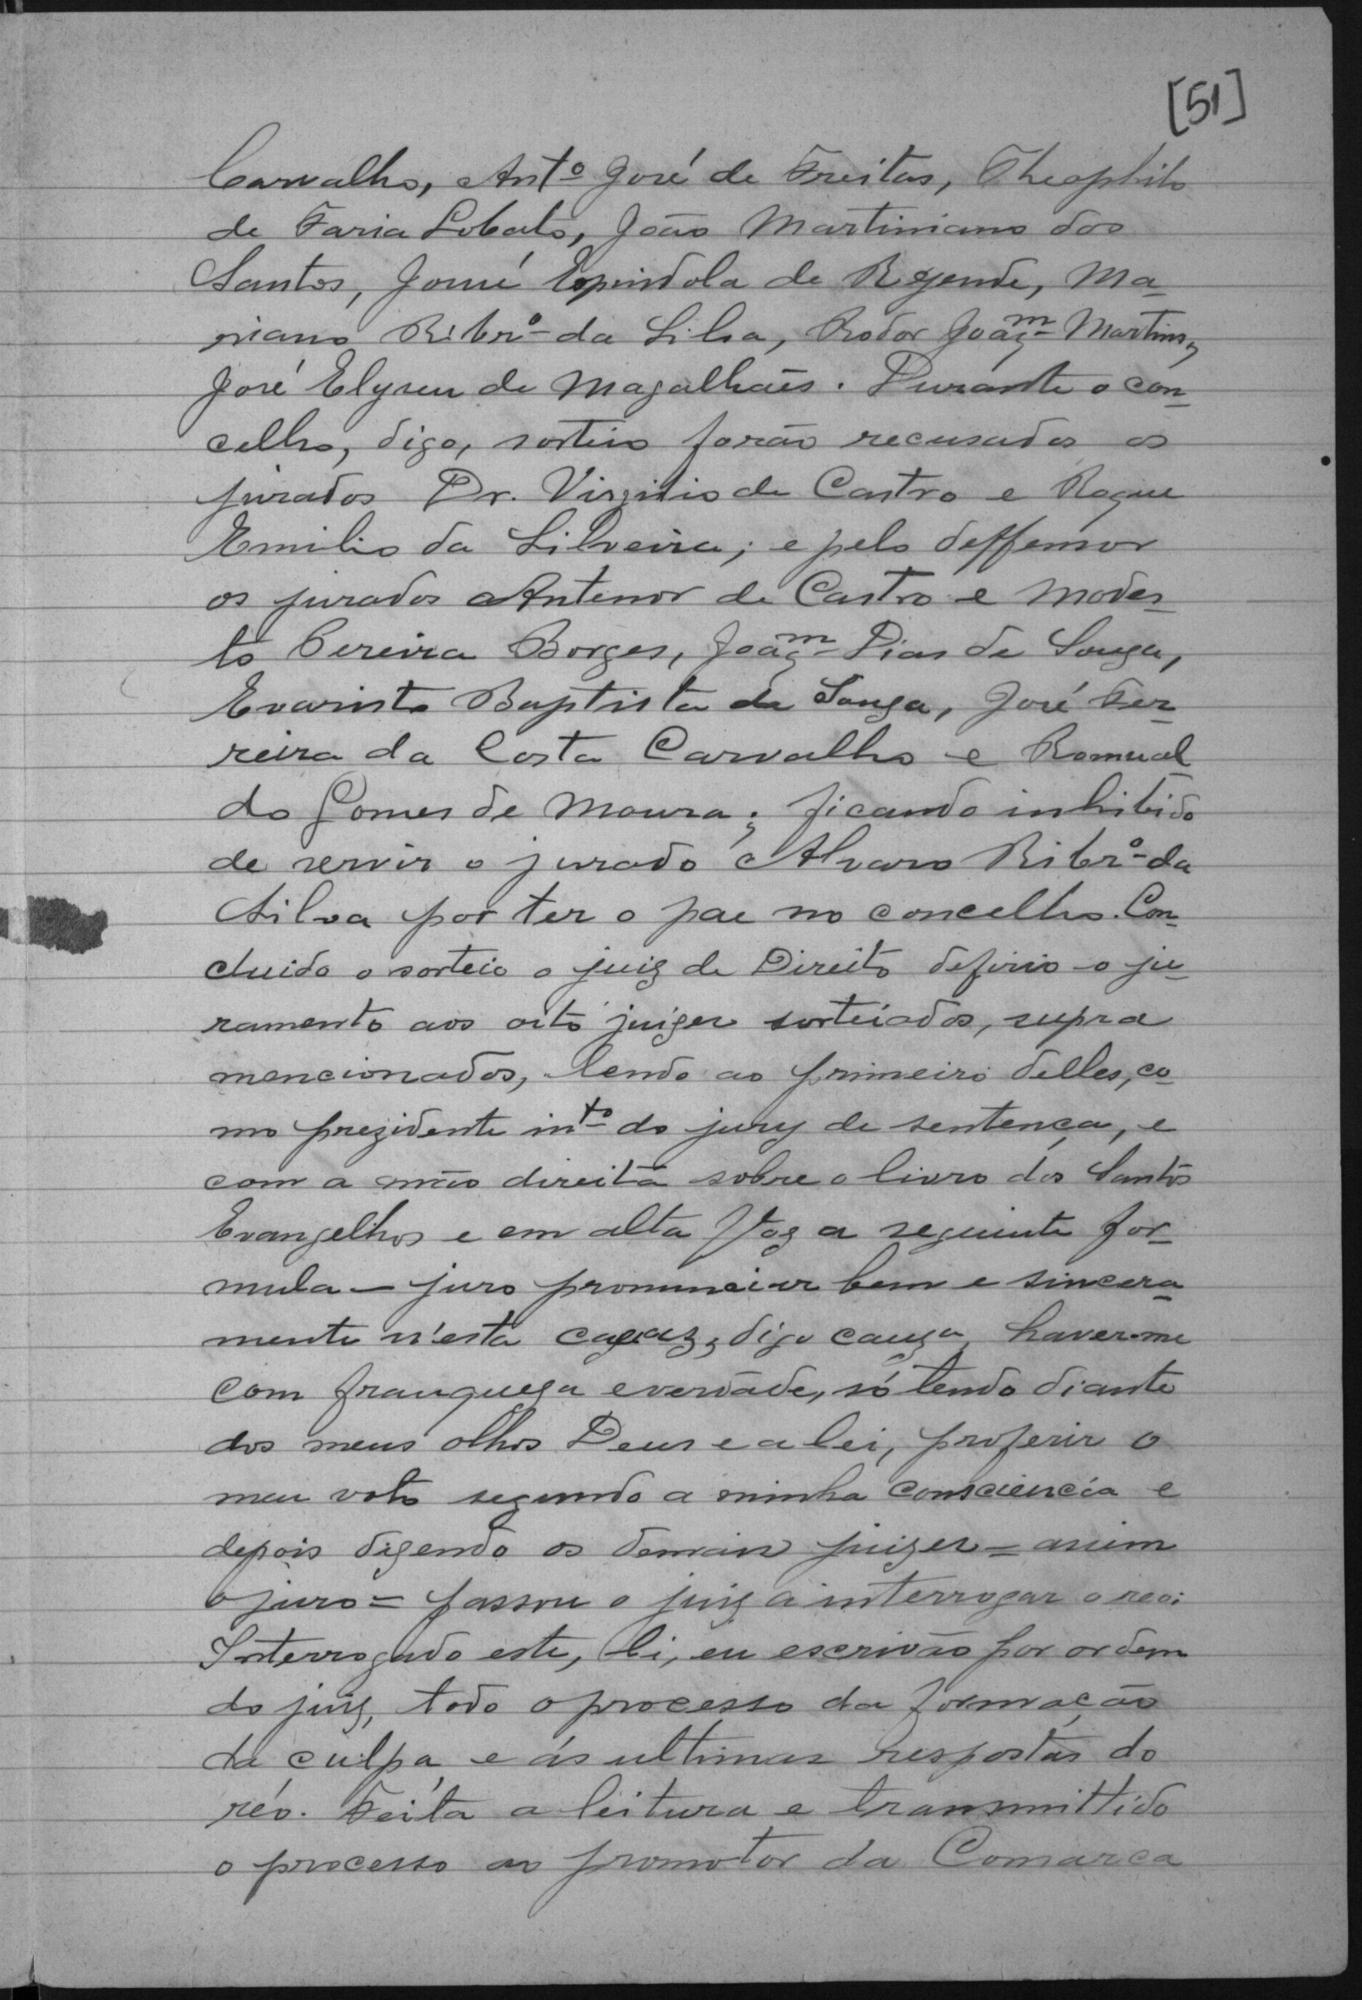 [51]
Carvalho, Antº José de Freitas, Theophilo
de Faria Lobato, João Martiniano dos
Santos, Josué Espindola de Rezende, Ma-
riano Ribrº da Silva, Joaqm Martins,
José Elyseu de Magalhães. Durante o con-
celho, digo, sorteio forão recusados os
jurados Dr. Virgilio de Castro e Roque
Emilio da Silveira; e pelo deffensor
os jurados Antenor de Castro e Modes-
to Pereira Borges, Joaqm Dias de Souza,
Evaristo Baptista de Souza, José Fer-
reira da Costa Carvalho e Romual
do Gomes de Moura; ficando inhibido
de servir o jurado Alvaro Ribrº da
Silva por ter o pae no concelho. Con-
cluido o sorteio o juiz de Direito defirio o ju-
ramento aos oito juizes sorteiados, supra
mencionados, lendo ao primeiro delles, co-
mo prezidente intº do jury de sentença, e
com a mão direita sobre o livro dos Santos
Evangelhos e em alta voz a seguinte for-
mula – juro pronunciar bem e sincera-
mente n'esta capaz, digo cauza, haver-me
com franqueza e verdade, só tendo diante
dos meus olhos Deus e a lei, proferir o
meu voto segundo a minha consciencia e
depois dizendo os demais juizes = assim
o juro = passou o juiz a interrogar o reo:
Interrogado este, li, eu escrivão por ordem
do juiz, todo o processo da formação
da culpa e ás ultimas respostas do
réo. Feita a leitura e transmittido
o processo ao promotor da Comarca